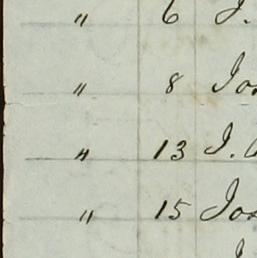 " 6 J.
" 8 Jos
" 13 J.
" 15 Jos